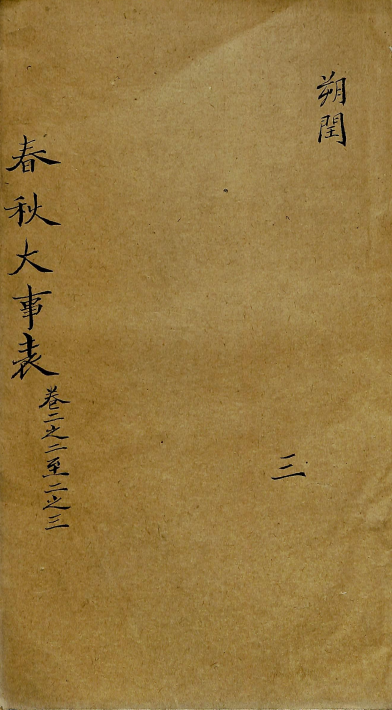 朔閏
三
春秋大事表
卷二之二至二之三